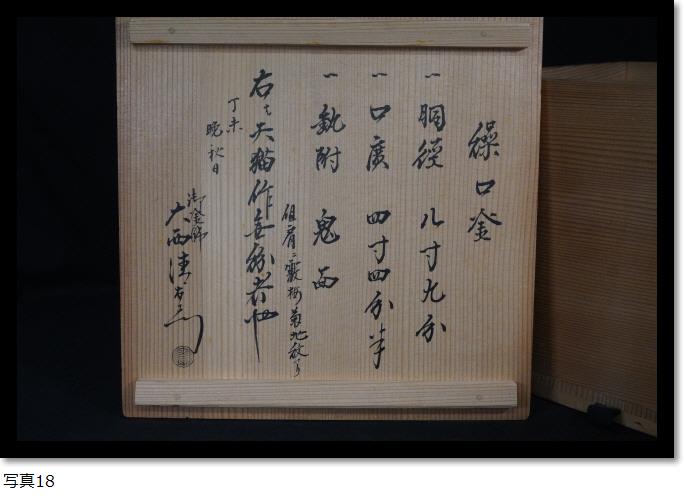 繰口釜
一 胴徑 八寸九分
一 口廣 四寸四分半
一 釻附 鬼面
但肩ニ霰梅菊地紋有
右ハ天猫作無紛者也
丁未
晩秋日
御釜師
大西清右衛門
写真18